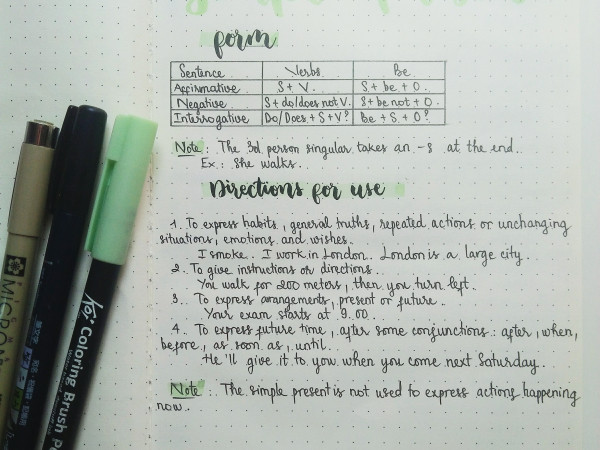 form
Sentence Verbs Be
Affirmative S + V. S + be + O.
Negative S + do/does not V. S + be not + O.
Interrogative Do/Does + S + V? Be + S + O?
Note: The 3rd person singular takes an -s at the end.
Ex: She walks.
Directions for use
1. To express habits, general truths, repeated actions or unchanging
situations, emotions and wishes.
I smoke. I work in London. London is a large city.
2. To give instructions or directions.
You walk for 200 meters, then you turn left.
3. To express arrangements, present or future.
Your exam starts at 9.00.
4. To express future time, after some conjunctions: after, when,
before, as soon as, until.
He'll give it to you when you come next Saturday.
Note: The simple present is not used to express actions happening
now.
MICRON
Coloring Brush